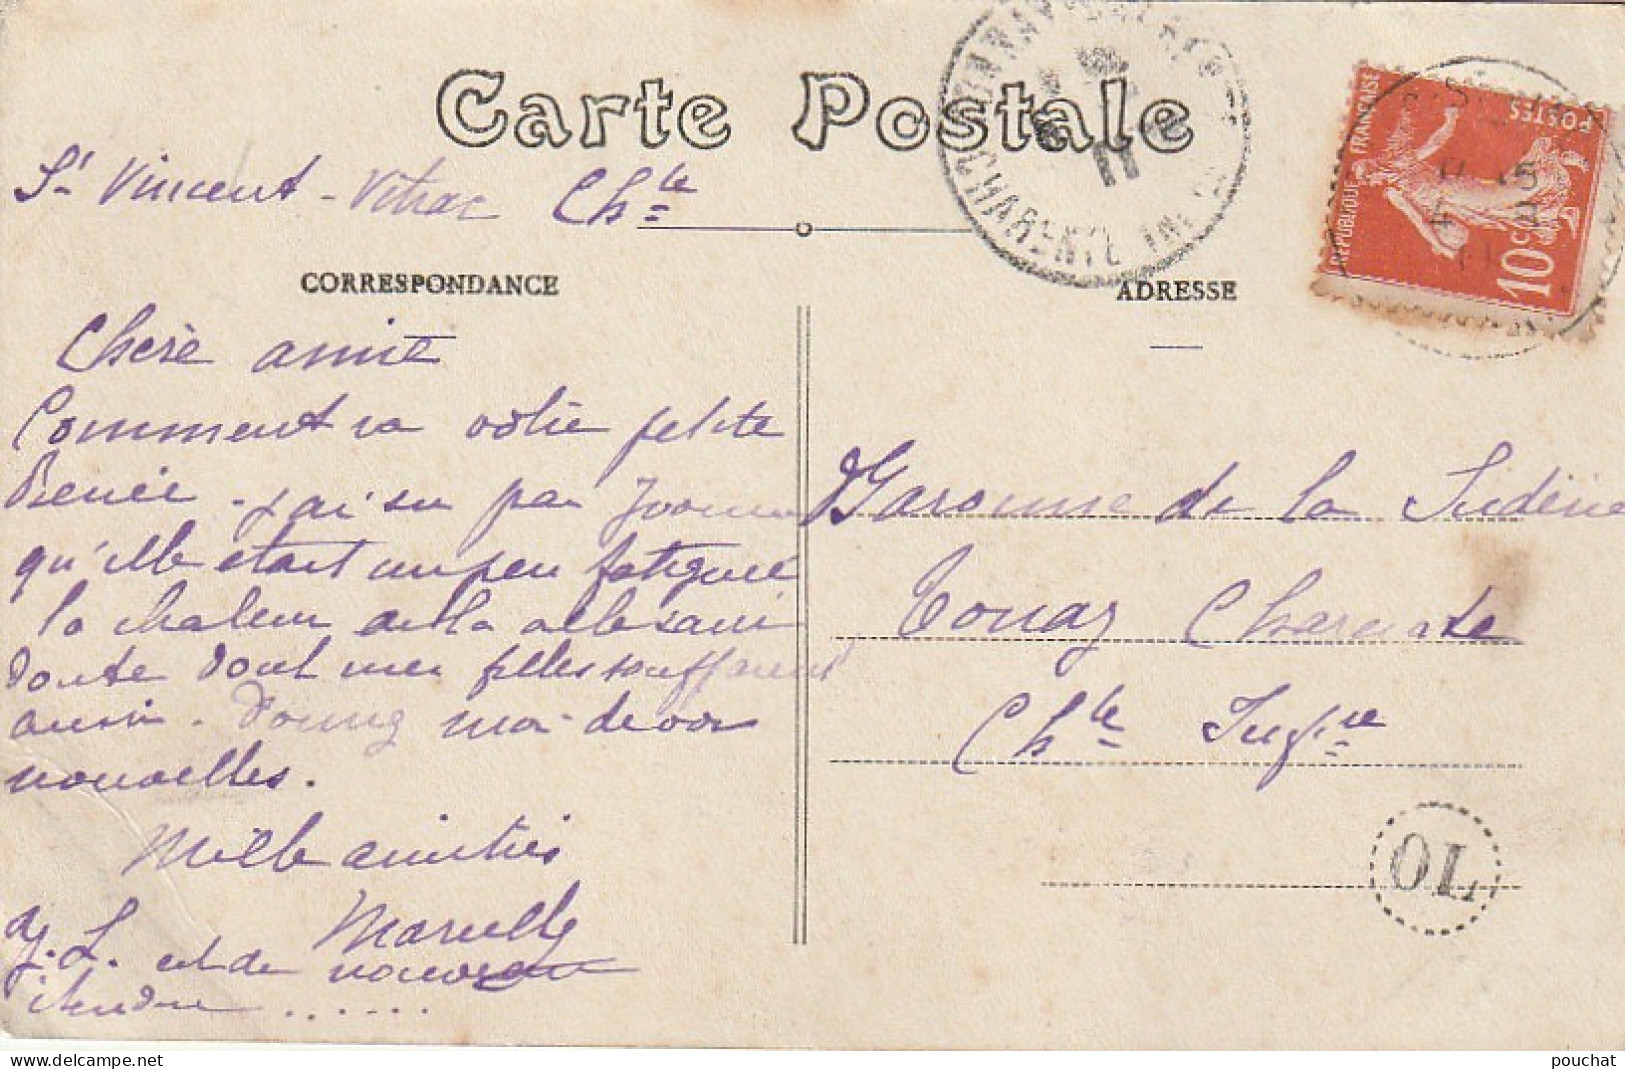 Carte Postale
St Vincent-Vitrac Chte
CORRESPONDANCE
ADRESSE
RÉPUBLIQUE FRANÇAISE
POSTES
10c
CHARENTE INF
11
Chère amie
Comment va votre petite
Renée - j'ai su par Yvonne
qu'elle était un peu fatiguée
la chaleur de la
doute dont mes filles souffrent
aussi. Donnez moi de vos
nouvelles.
Mille amitiés
Marcelle
J. L. est de nouveau
Baronne de la
Tonay Charente
Chte Infre
OL
pouchat